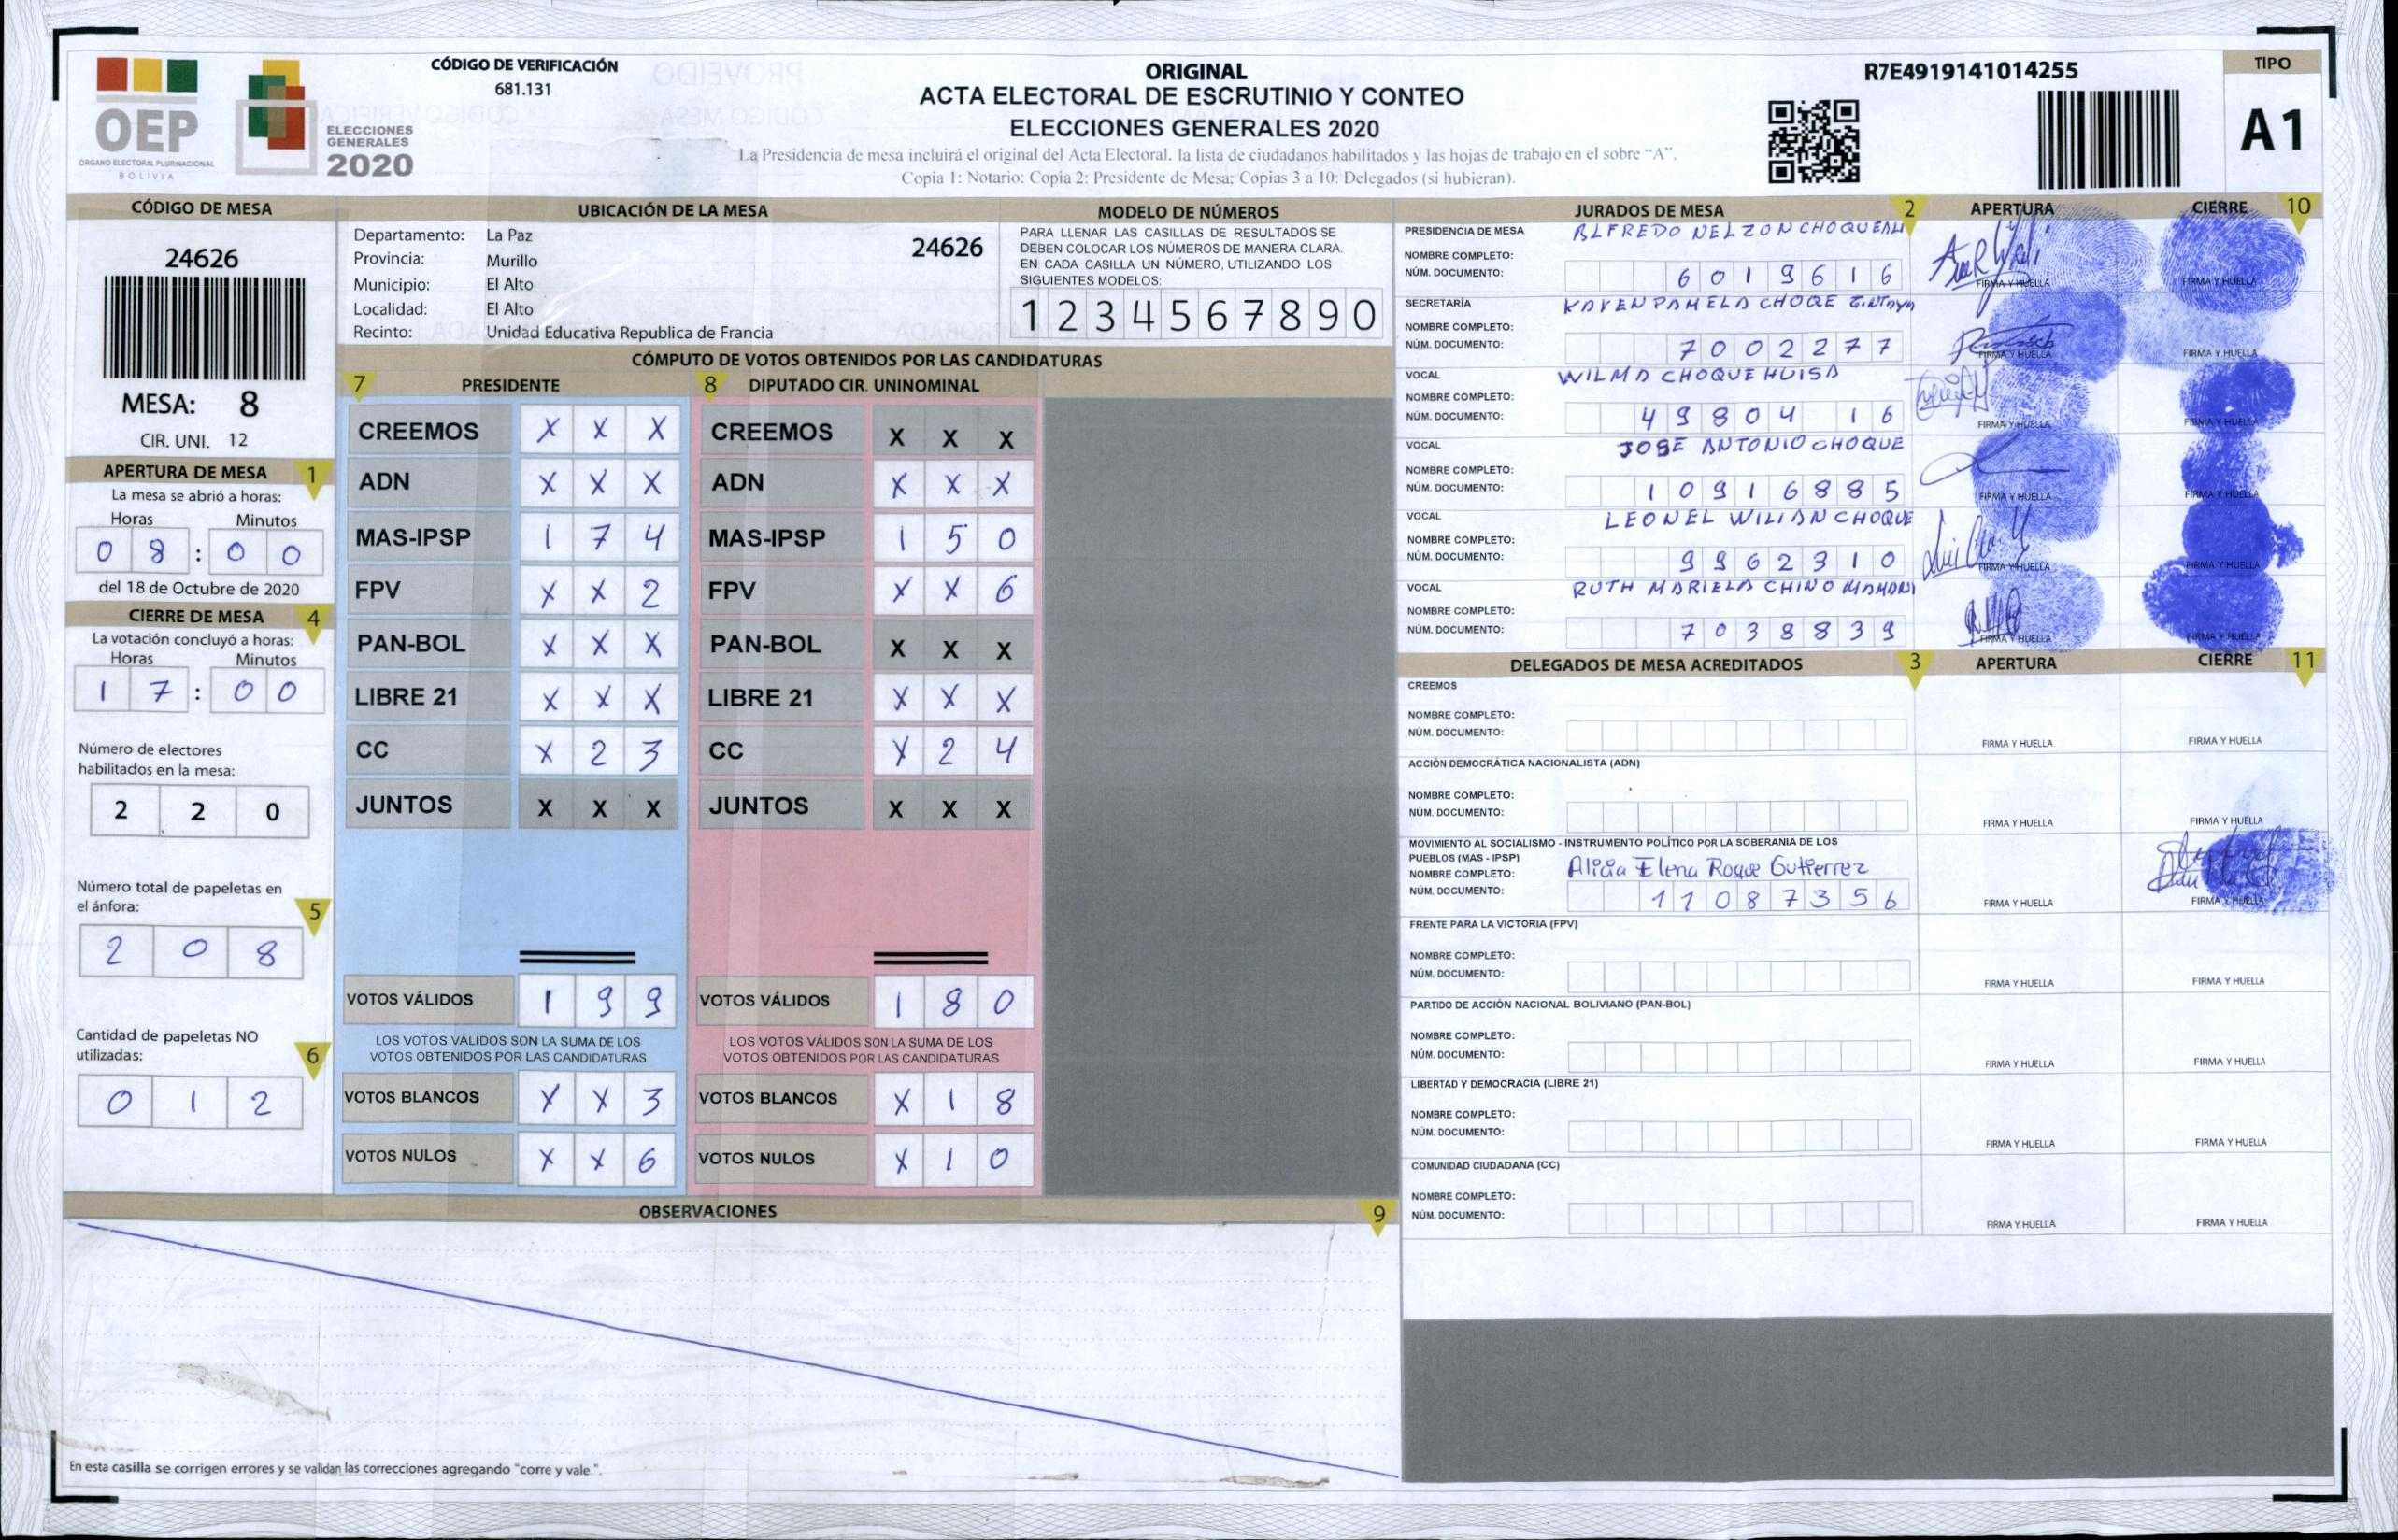 OEP
ORGANO ELECTORAL PLURINACIONAL
BOLIVIA
ELECCIONES
GENERALES
2020
CÓDIGO DE VERIFICACIÓN
681.131
ORIGINAL
ACTA ELECTORAL DE ESCRUTINIO Y CONTEO
ELECCIONES GENERALES 2020
La Presidencia de mesa incluirá el original del Acta Electoral. la lista de ciudadanos habilitados y las hojas de trabajo en el sobre "A".
Copia 1: Notario: Copia 2: Presidente de Mesa; Copias 3 a 10: Delegados (si hubieran).
R7E4919141014255
TIPO
A1
CÓDIGO DE MESA
24626
MESA: 8
CIR. UNI. 12
APERTURA DE MESA 1
La mesa se abrió a horas:
Horas Minutos
0 8 : 0 0
del 18 de Octubre de 2020
CIERRE DE MESA 4
La votación concluyó a horas:
Horas Minutos
1 7 : 0 0
Número de electores
habilitados en la mesa:
2 2 0
Número total de papeletas en
el ánfora: 5
2 0 8
Cantidad de papeletas NO
utilizadas: 6
0 1 2
UBICACIÓN DE LA MESA
Departamento: La Paz
24626
Provincia: Murillo
Municipio: El Alto
Localidad: El Alto
Recinto: Unidad Educativa Republica de Francia
MODELO DE NÚMEROS
PARA LLENAR LAS CASILLAS DE RESULTADOS SE
DEBEN COLOCAR LOS NÚMEROS DE MANERA CLARA.
EN CADA CASILLA UN NÚMERO, UTILIZANDO LOS
SIGUIENTES MODELOS:
1 2 3 4 5 6 7 8 9 0
CÓMPUTO DE VOTOS OBTENIDOS POR LAS CANDIDATURAS
7 PRESIDENTE
CREEMOS X X X
ADN X X X
MAS-IPSP 1 7 4
FPV X X 2
PAN-BOL X X X
LIBRE 21 X X X
CC X 2 3
JUNTOS X X X
VOTOS VÁLIDOS 1 9 9
LOS VOTOS VÁLIDOS SON LA SUMA DE LOS
VOTOS OBTENIDOS POR LAS CANDIDATURAS
VOTOS BLANCOS X X 3
VOTOS NULOS X X 6
8 DIPUTADO CIR. UNINOMINAL
CREEMOS X X X
ADN X X X
MAS-IPSP 1 5 0
FPV X X 6
PAN-BOL X X X
LIBRE 21 X X X
CC X 2 4
JUNTOS X X X
VOTOS VÁLIDOS 1 8 0
LOS VOTOS VÁLIDOS SON LA SUMA DE LOS
VOTOS OBTENIDOS POR LAS CANDIDATURAS
VOTOS BLANCOS X 1 8
VOTOS NULOS X 1 0
OBSERVACIONES 9
En esta casilla se corrigen errores y se validan las correcciones agregando "corre y vale".
JURADOS DE MESA 2 APERTURA CIERRE 10
PRESIDENCIA DE MESA ALFREDO NELZON
NOMBRE COMPLETO:
NÚM. DOCUMENTO: 6 0 1 9 6 1 6
FIRMA Y HUELLA FIRMA Y HUELLA
SECRETARÍA KAREN PAMELA CHOQE
NOMBRE COMPLETO:
NÚM. DOCUMENTO: 7 0 0 2 2 7 7
FIRMA Y HUELLA FIRMA Y HUELLA
VOCAL WILMA CHOQUEHUISA
NOMBRE COMPLETO:
NÚM. DOCUMENTO: 4 9 8 0 4 1 6
FIRMA Y HUELLA FIRMA Y HUELLA
VOCAL JOSE ANTONIO CHOQUE
NOMBRE COMPLETO:
NÚM. DOCUMENTO: 1 0 9 1 6 8 8 5
FIRMA Y HUELLA FIRMA Y HUELLA
VOCAL LEONEL WILIAN CHOQUE
NOMBRE COMPLETO:
NÚM. DOCUMENTO: 9 9 6 2 3 1 0
FIRMA Y HUELLA FIRMA Y HUELLA
VOCAL RUTH MARIELA CHINO MAMANI
NOMBRE COMPLETO:
NÚM. DOCUMENTO: 7 0 3 8 8 3 9
FIRMA Y HUELLA FIRMA Y HUELLA
DELEGADOS DE MESA ACREDITADOS 3 APERTURA CIERRE 11
CREEMOS
NOMBRE COMPLETO:
NÚM. DOCUMENTO:
FIRMA Y HUELLA FIRMA Y HUELLA
ACCIÓN DEMOCRÁTICA NACIONALISTA (ADN)
NOMBRE COMPLETO:
NÚM. DOCUMENTO:
FIRMA Y HUELLA FIRMA Y HUELLA
MOVIMIENTO AL SOCIALISMO - INSTRUMENTO POLÍTICO POR LA SOBERANIA DE LOS
PUEBLOS (MAS - IPSP)
NOMBRE COMPLETO: Alicia Elena Roque Gutierrez
NÚM. DOCUMENTO: 1 1 0 8 7 3 5 6
FIRMA Y HUELLA FIRMA Y HUELLA
FRENTE PARA LA VICTORIA (FPV)
NOMBRE COMPLETO:
NÚM. DOCUMENTO:
FIRMA Y HUELLA FIRMA Y HUELLA
PARTIDO DE ACCIÓN NACIONAL BOLIVIANO (PAN-BOL)
NOMBRE COMPLETO:
NÚM. DOCUMENTO:
FIRMA Y HUELLA FIRMA Y HUELLA
LIBERTAD Y DEMOCRACIA (LIBRE 21)
NOMBRE COMPLETO:
NÚM. DOCUMENTO:
FIRMA Y HUELLA FIRMA Y HUELLA
COMUNIDAD CIUDADANA (CC)
NOMBRE COMPLETO:
NÚM. DOCUMENTO:
FIRMA Y HUELLA FIRMA Y HUELLA